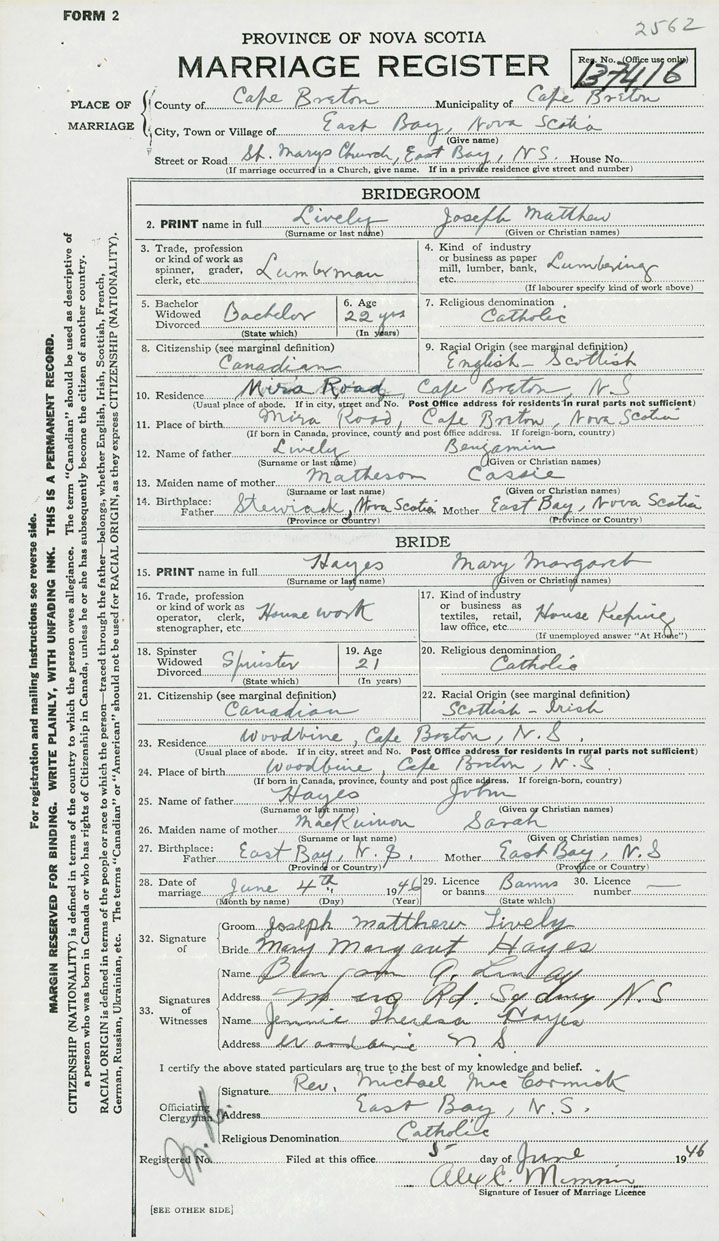 FORM 2
2562
PROVINCE OF NOVA SCOTIA
MARRIAGE REGISTER
Reg. No. (Office use only)
PLACE OF MARRIAGE
County of Cape Breton Municipality of Cape Breton
City, Town or Village of East Bay, Nova Scotia
(Give name)
Street or Road St. Marys Church, East Bay, N.S. House No.
(If marriage occurred in a Church, give name. If in a private residence give street and number)
BRIDEGROOM
2. PRINT name in full Lively Joseph Matthew
(Surname or last name) (Given or Christian names)
3. Trade, profession or kind of work as spinner, grader, clerk, etc. Lumberman
4. Kind of industry or business as paper mill, lumber, bank, etc. Lumbering
(If labourer specify kind of work above)
5. Bachelor Widowed Divorced Bachelor
(State which)
6. Age 22 yrs
(In years)
7. Religious denomination
Catholic
8. Citizenship (see marginal definition)
Canadian
9. Racial Origin (see marginal definition)
English - Scottish
10. Residence Mira Road, Cape Breton, N.S
(Usual place of abode. If in city, street and No. Post Office address for residents in rural parts not sufficient)
11. Place of birth Mira Road, Cape Breton, Nova Scotia
(If born in Canada, province, county and post office address. If foreign-born, country)
12. Name of father Lively Benjamin
(Surname or last name) (Given or Christian names)
13. Maiden name of mother Matheson Cassie
(Surname or last name) (Given or Christian names)
14. Birthplace: Father Stewiack, Nova Scotia Mother East Bay, Nova Scotia
(Province or Country) (Province or Country)
BRIDE
15. PRINT name in full Hayes Mary Margaret
(Surname or last name) (Given or Christian names)
16. Trade, profession or kind of work as operator, clerk, stenographer, etc. House work
17. Kind of industry or business as textiles, retail, law office, etc. House Keeping
(If unemployed answer "At Home")
18. Spinster Widowed Divorced Spinster
(State which)
19. Age 21
(In years)
20. Religious denomination
Catholic
21. Citizenship (see marginal definition)
Canadian
22. Racial Origin (see marginal definition)
Scottish - Irish
23. Residence Woodbine, Cape Breton, N.S.
(Usual place of abode. If in city, street and No. Post Office address for residents in rural parts not sufficient)
24. Place of birth Woodbine, Cape Breton, N.S.
(If born in Canada, province, county and post office address. If foreign-born, country)
25. Name of father Hayes John
(Surname or last name) (Given or Christian names)
26. Maiden name of mother MacKinnon Sarah
(Surname or last name) (Given or Christian names)
27. Birthplace: Father East Bay, N.S. Mother East Bay, N.S
(Province or Country) (Province or Country)
28. Date of marriage June 4th 1946
(Month by name) (Day) (Year)
29. Licence or banns Banns
(State which)
30. Licence number —
32. Signature of
Groom Joseph Matthew Lively
Bride Mary Margaret Hayes
33. Signatures of Witnesses
Name
Address Rd. Sydney N.S
Name Jennie Theresa Hayes
Address N S.
I certify the above stated particulars are true to the best of my knowledge and belief.
Officiating Clergyman
Signature Rev. Michael MacCormick
Address East Bay, N.S.
Religious Denomination Catholic
Registered No. Filed at this office 5 day of June 1946
Alex C.
Signature of Issuer of Marriage Licence
[SEE OTHER SIDE]
For registration and mailing instructions see reverse side.
MARGIN RESERVED FOR BINDING. WRITE PLAINLY, WITH UNFADING INK. THIS IS A PERMANENT RECORD.
CITIZENSHIP (NATIONALITY) is defined in terms of the country to which the person owes allegiance. The term "Canadian" should be used as descriptive of
a person who was born in Canada or who has rights of Citizenship in Canada, unless he or she has subsequently become the citizen of another country.
RACIAL ORIGIN is defined in terms of the people or race to which the person—traced through the father—belongs, whether English, Irish, Scottish, French,
German, Russian, Ukrainian, etc. The terms "Canadian" or "American" should not be used for RACIAL ORIGIN, as they express CITIZENSHIP (NATIONALITY).